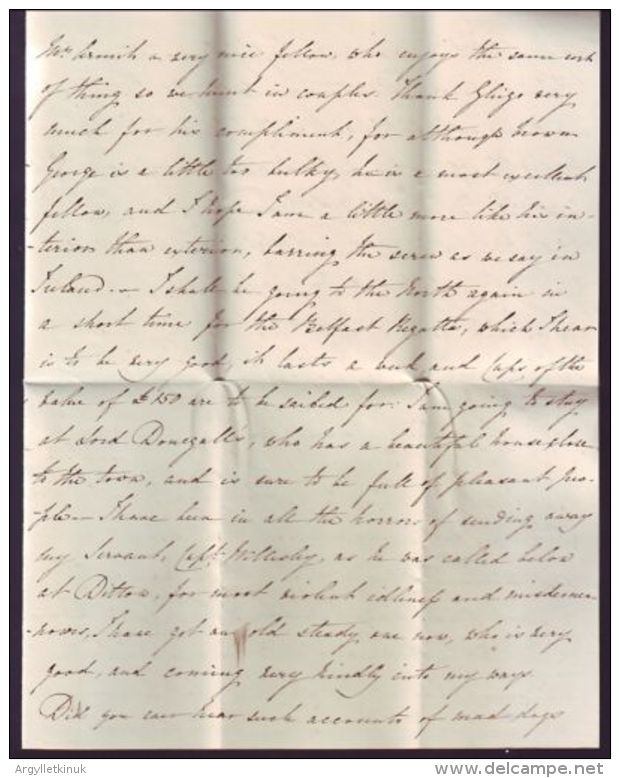 a very nice fellow, who enjoys the same sort
of thing so we hunt in couples. Thank very
much for his compliment, for although
George is a little too bulky, he is a most excellent
fellow, and I hope I am a little more like his in-
terior than exterior, barring the as we say in
Ireland. – I shall be going to the North again in
a short time for the Belfast Regatta, which I hear
is to be very good, it lasts a week and Cups of the
value of £150 are to be sailed for. I am going to stay
at Lord Donegall's, who has a beautiful house close
to the town, and is sure to be full of pleasant peo-
ple – I have been in all the horrors of sending away
my Servant, Capt. as he was called below
at Ditton, for most violent idleness and misdemea-
nours, I have got an old steady one now, who is very
good, and coming very kindly into my ways.
Did you ever hear such accounts of mad dogs
Argylletkinuk
www.delcampe.net